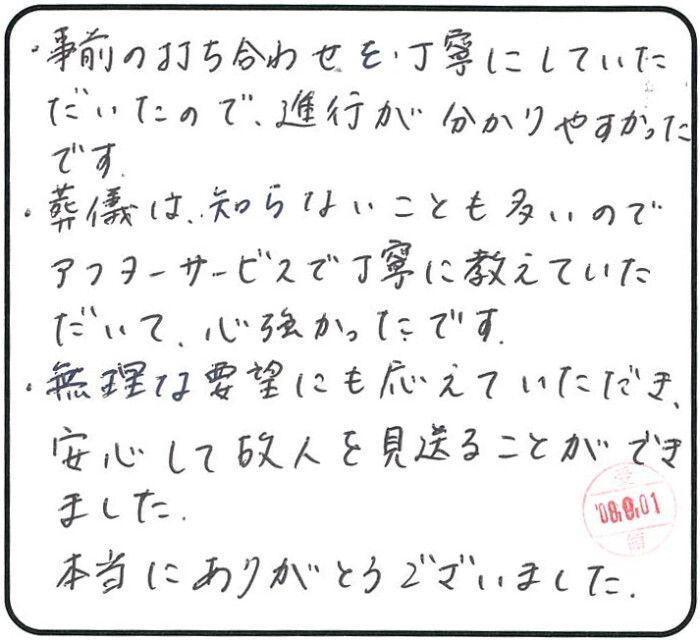 ・事前の打ち合わせを丁寧にしていた
だいたので、進行が分かりやすかった
です.
・葬儀は、知らないことも多いので
アフターサービスで丁寧に教えていた
だいて、心強かったです.
・無理な要望にも応えていただき、
安心して故人を見送ることができ
ました.
本当にありがとうございました.
受